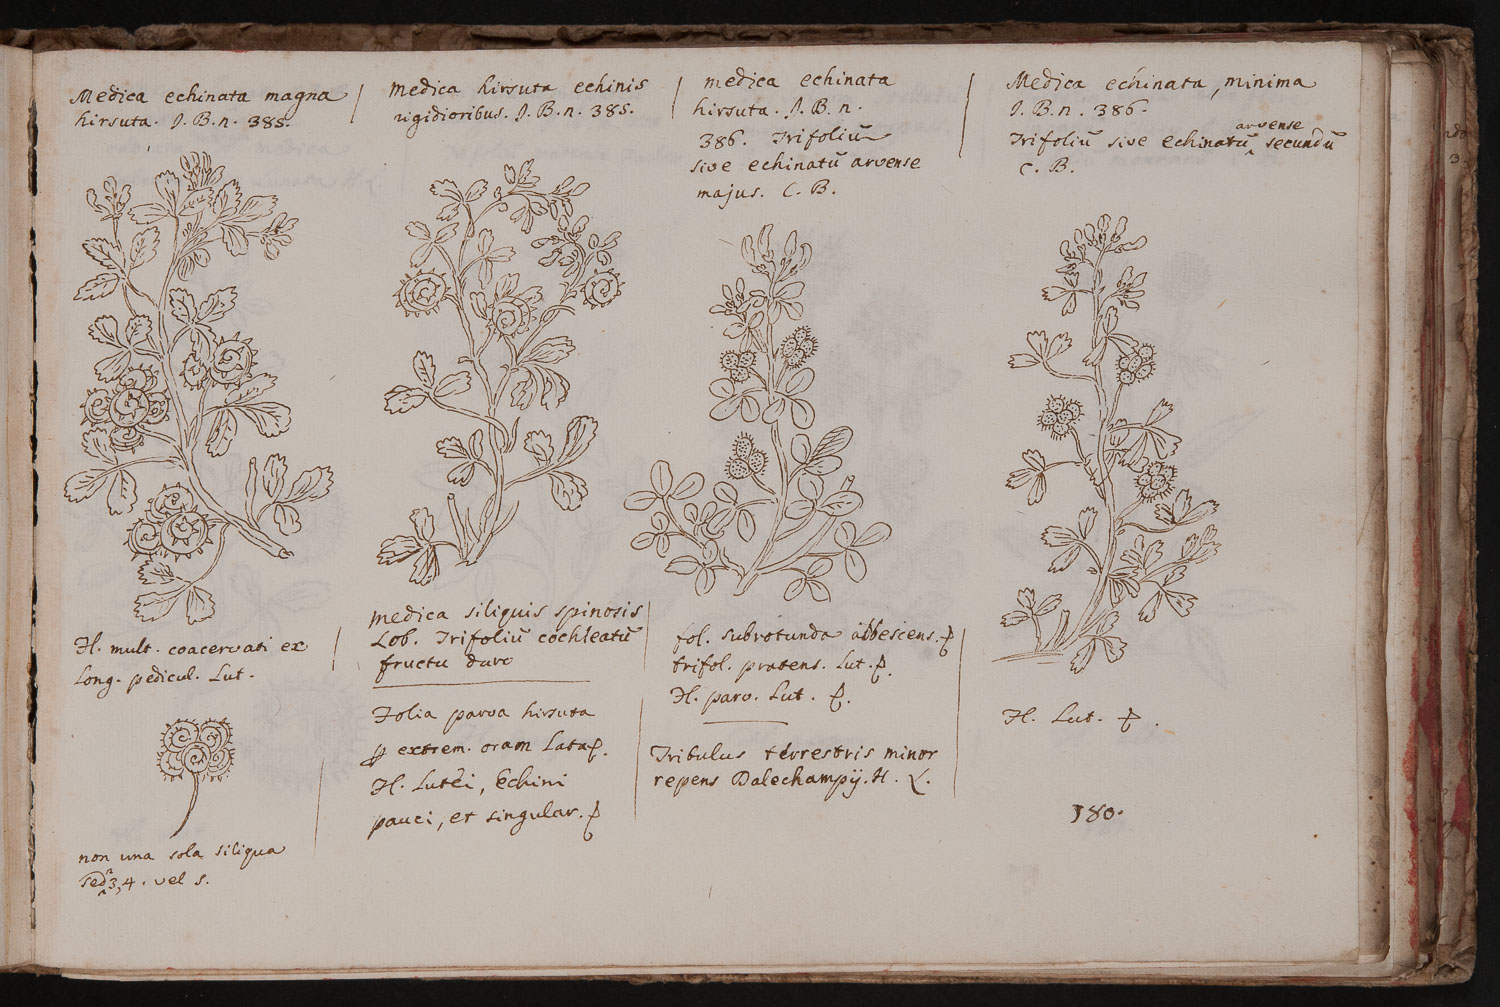 Medica echinata magna
hirsuta. J. B. n. 385.
non una sola siliqua
sed 3, 4. vel 5.
H. mult. coacervati ex
long. pedicul. Lut.
medica hirsuta echinis
rigidioribus. J. B. n. 385.
medica siliquis spinosis
Lob. Trifoliū cochleatū
fructu duro
Folia parva hirsuta
extrem. oram lata
H. Lutei, Echini
pauci, et singular.
medica echinata
hirsuta. J. B. n.
386. Trifoliū
sive echinatū arvense
majus. C. B.
fol. subrotunda albescens.
trifol. pratens. Lut.
H. parv. Lut.
Tribulus terrestris minor
repens Dalechampij. H. L.
Medica echinata, minima
J. B. n. 386.
Trifoliū sive echinatū arvense secundū
C. B.
H. Lut.
180.